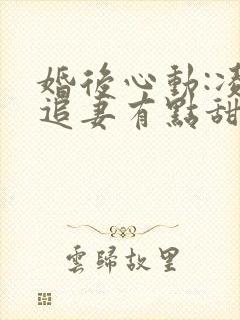 婚後心動:凌
追妻有點甜
雲歸故里